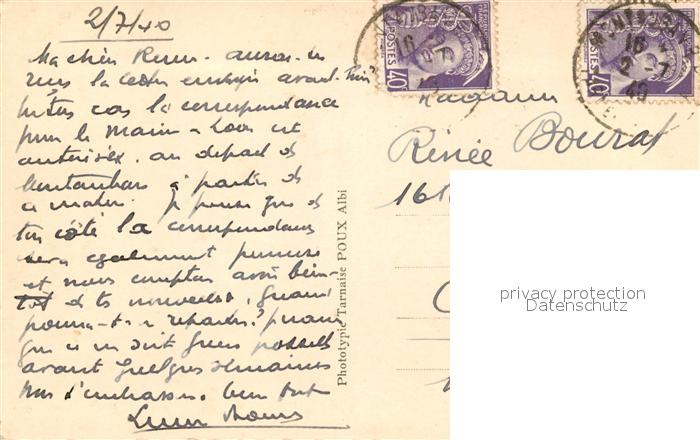 2/7/40
Ma chère Renée. auras-tu
reçu la lettre envoyée avant-hier
la correspondance
pour le Maine & Loire est
autorisée. au départ de
Montauban à partir de
ce matin. Je pense que de
ton côté la correspondance
sera également permise
et nous comptons avoir bien-
tôt de tes nouvelles. Quand
pourras-tu repartir?
que ce ne soit guère possible
avant quelques semaines
Nous t'embrassons bien fort
Madame
Renée Bourat
161
Phototypie Tarnaise POUX Albi
POSTES
40
POSTES
40
16
2-7
40
privacy protection
Datenschutz